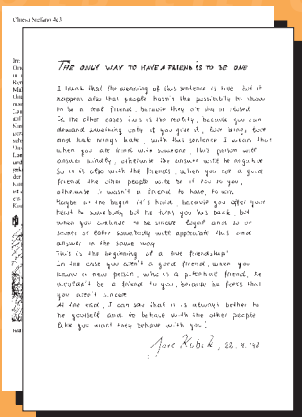 Chiesa Stefano 4c3
THE ONLY WAY TO HAVE A FRIEND IS TO BE ONE
I think that the meaning of this sentence is true but it
happens also that people hasn't the possibility to show
to be a real friend, because they are shy or closed
In the other cases this is the reality, because you can
demand something only if you give it, love bring love
and hate brings hate, with this sentence I mean that
when you are kind with someone, this person will
answer kindly, otherwise the answer will be negative
So it is also with the friends, when you are a good
friend the other people will be it too to you,
otherwise it wasn't a friend to have, to win.
Maybe at the begin it's hard, because you offer your
hand to somebody but he turns you his back, but
when you continue to be sincere, loyal and so on
sooner or later somebody will appreciate this and
answer in the same way
This is the beginning of a true friendship!
In the case you aren't a good friend, when you
know a new person, who is a potential friend, he
wouldn't be a friend to you, because he feels that
you aren't sincere
At the end, I can say that it is always better to
be yourself and to behave with the other people
like you want they behave with you!
Kubik, 22. 4.